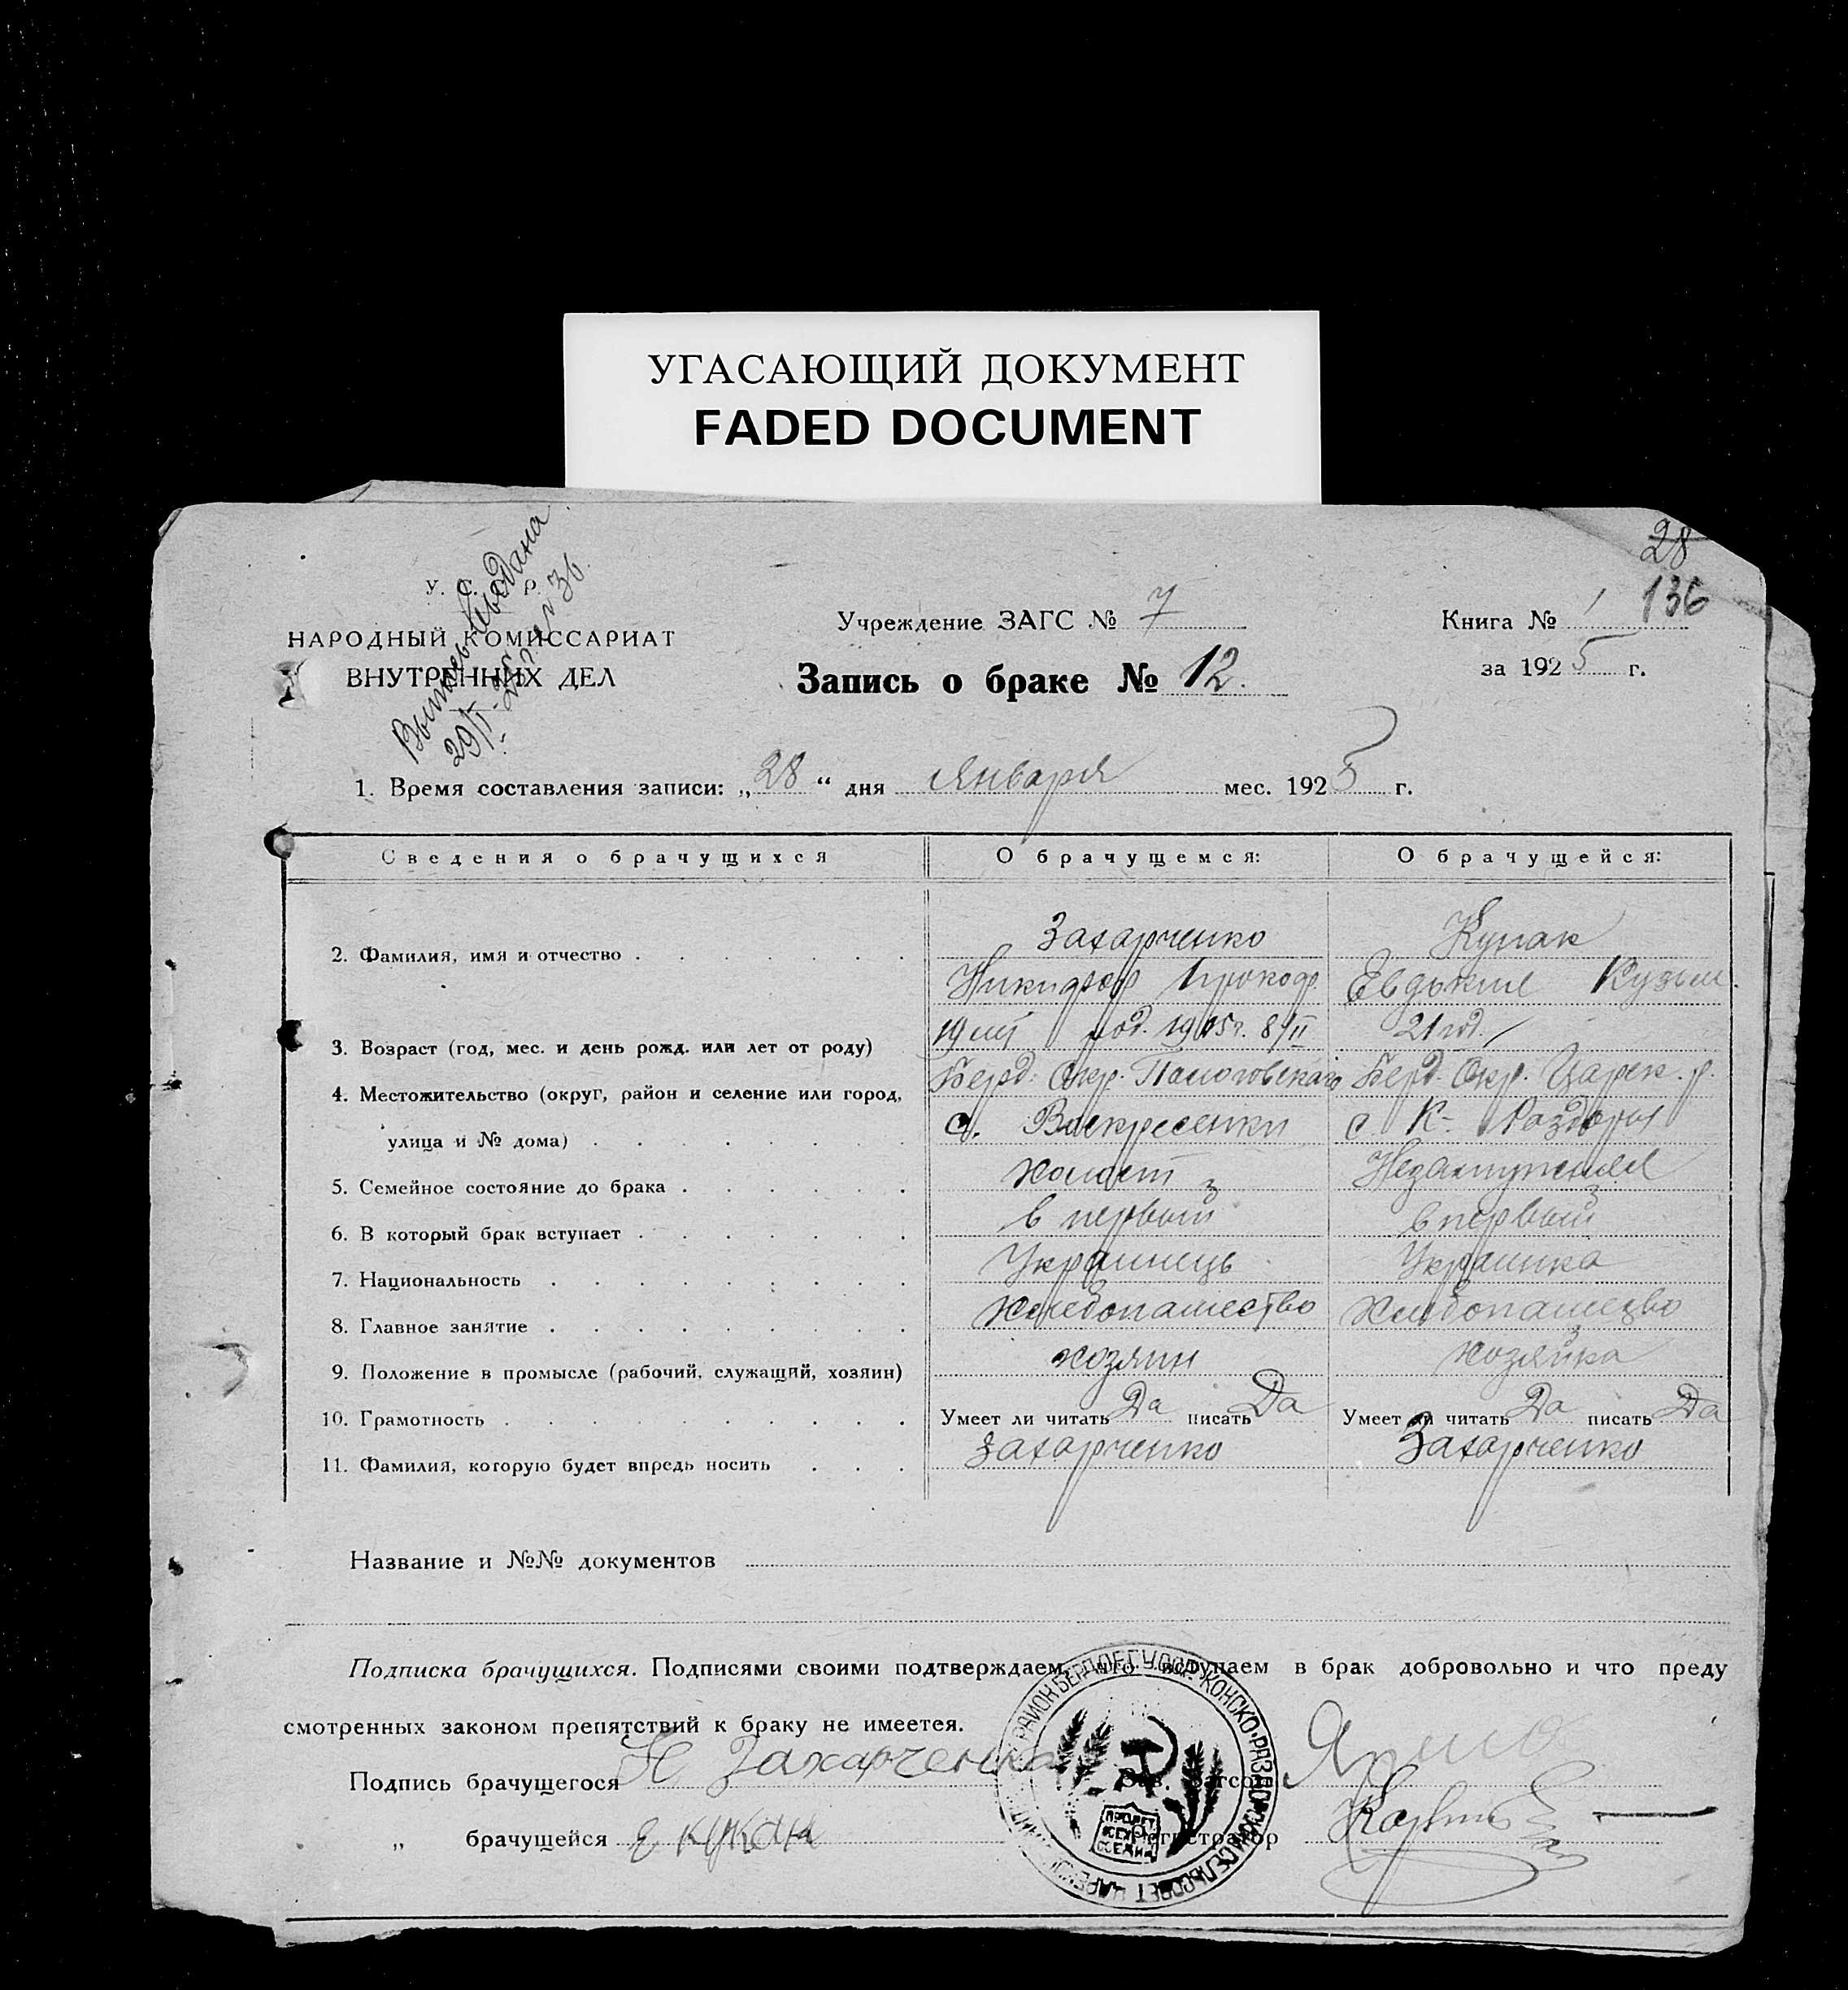 УГАСАЮЩИЙ ДОКУМЕНТ
FADED DOCUMENT
28
136
У. С. С. Р.
НАРОДНЫЙ КОМИССАРИАТ
ВНУТРЕННИХ ДЕЛ
Учреждение ЗАГС № 7
Запись о браке № 12.
Книга № 1
за 1925 г.
1. Время составления записи: „28“ дня Января мес. 1925 г.
Сведения о брачущихся О брачущемся: О брачущейся:
2. Фамилия, имя и отчество Захарченко
Никифор Прокоф.
Евдокия Кузьм.
3. Возраст (год, мес. и день рожд. или лет от роду) 19 лет род. 1905 г. 8/II 21 год.
4. Местожительство (округ, район и селение или город, Берд. Окр. Пологовского Берд. Окр. Царек. р.
улица и № дома) с. Воскресенки с. К- Раздоры
5. Семейное состояние до брака холост 3 Незамужняя 3
6. В который брак вступает в первый в первый
7. Национальность Украинець Украинка
8. Главное занятие Хлебопашество Хлебопашество
9. Положение в промысле (рабочий, служащий, хозяин) хозяин хозяйка
10. Грамотность Умеет ли читать Да писать Да Умеет ли читать Да писать Да
11. Фамилия, которую будет впредь носить Захарченко Захарченко
Название и №№ документов
Подписка брачущихся. Подписями своими подтверждаем, что вступаем в брак добровольно и что преду
смотренных законом препятствий к браку не имеется.
Подпись брачущегося Н Захарченко Зав. Загсом
„ брачущейся Регистратор